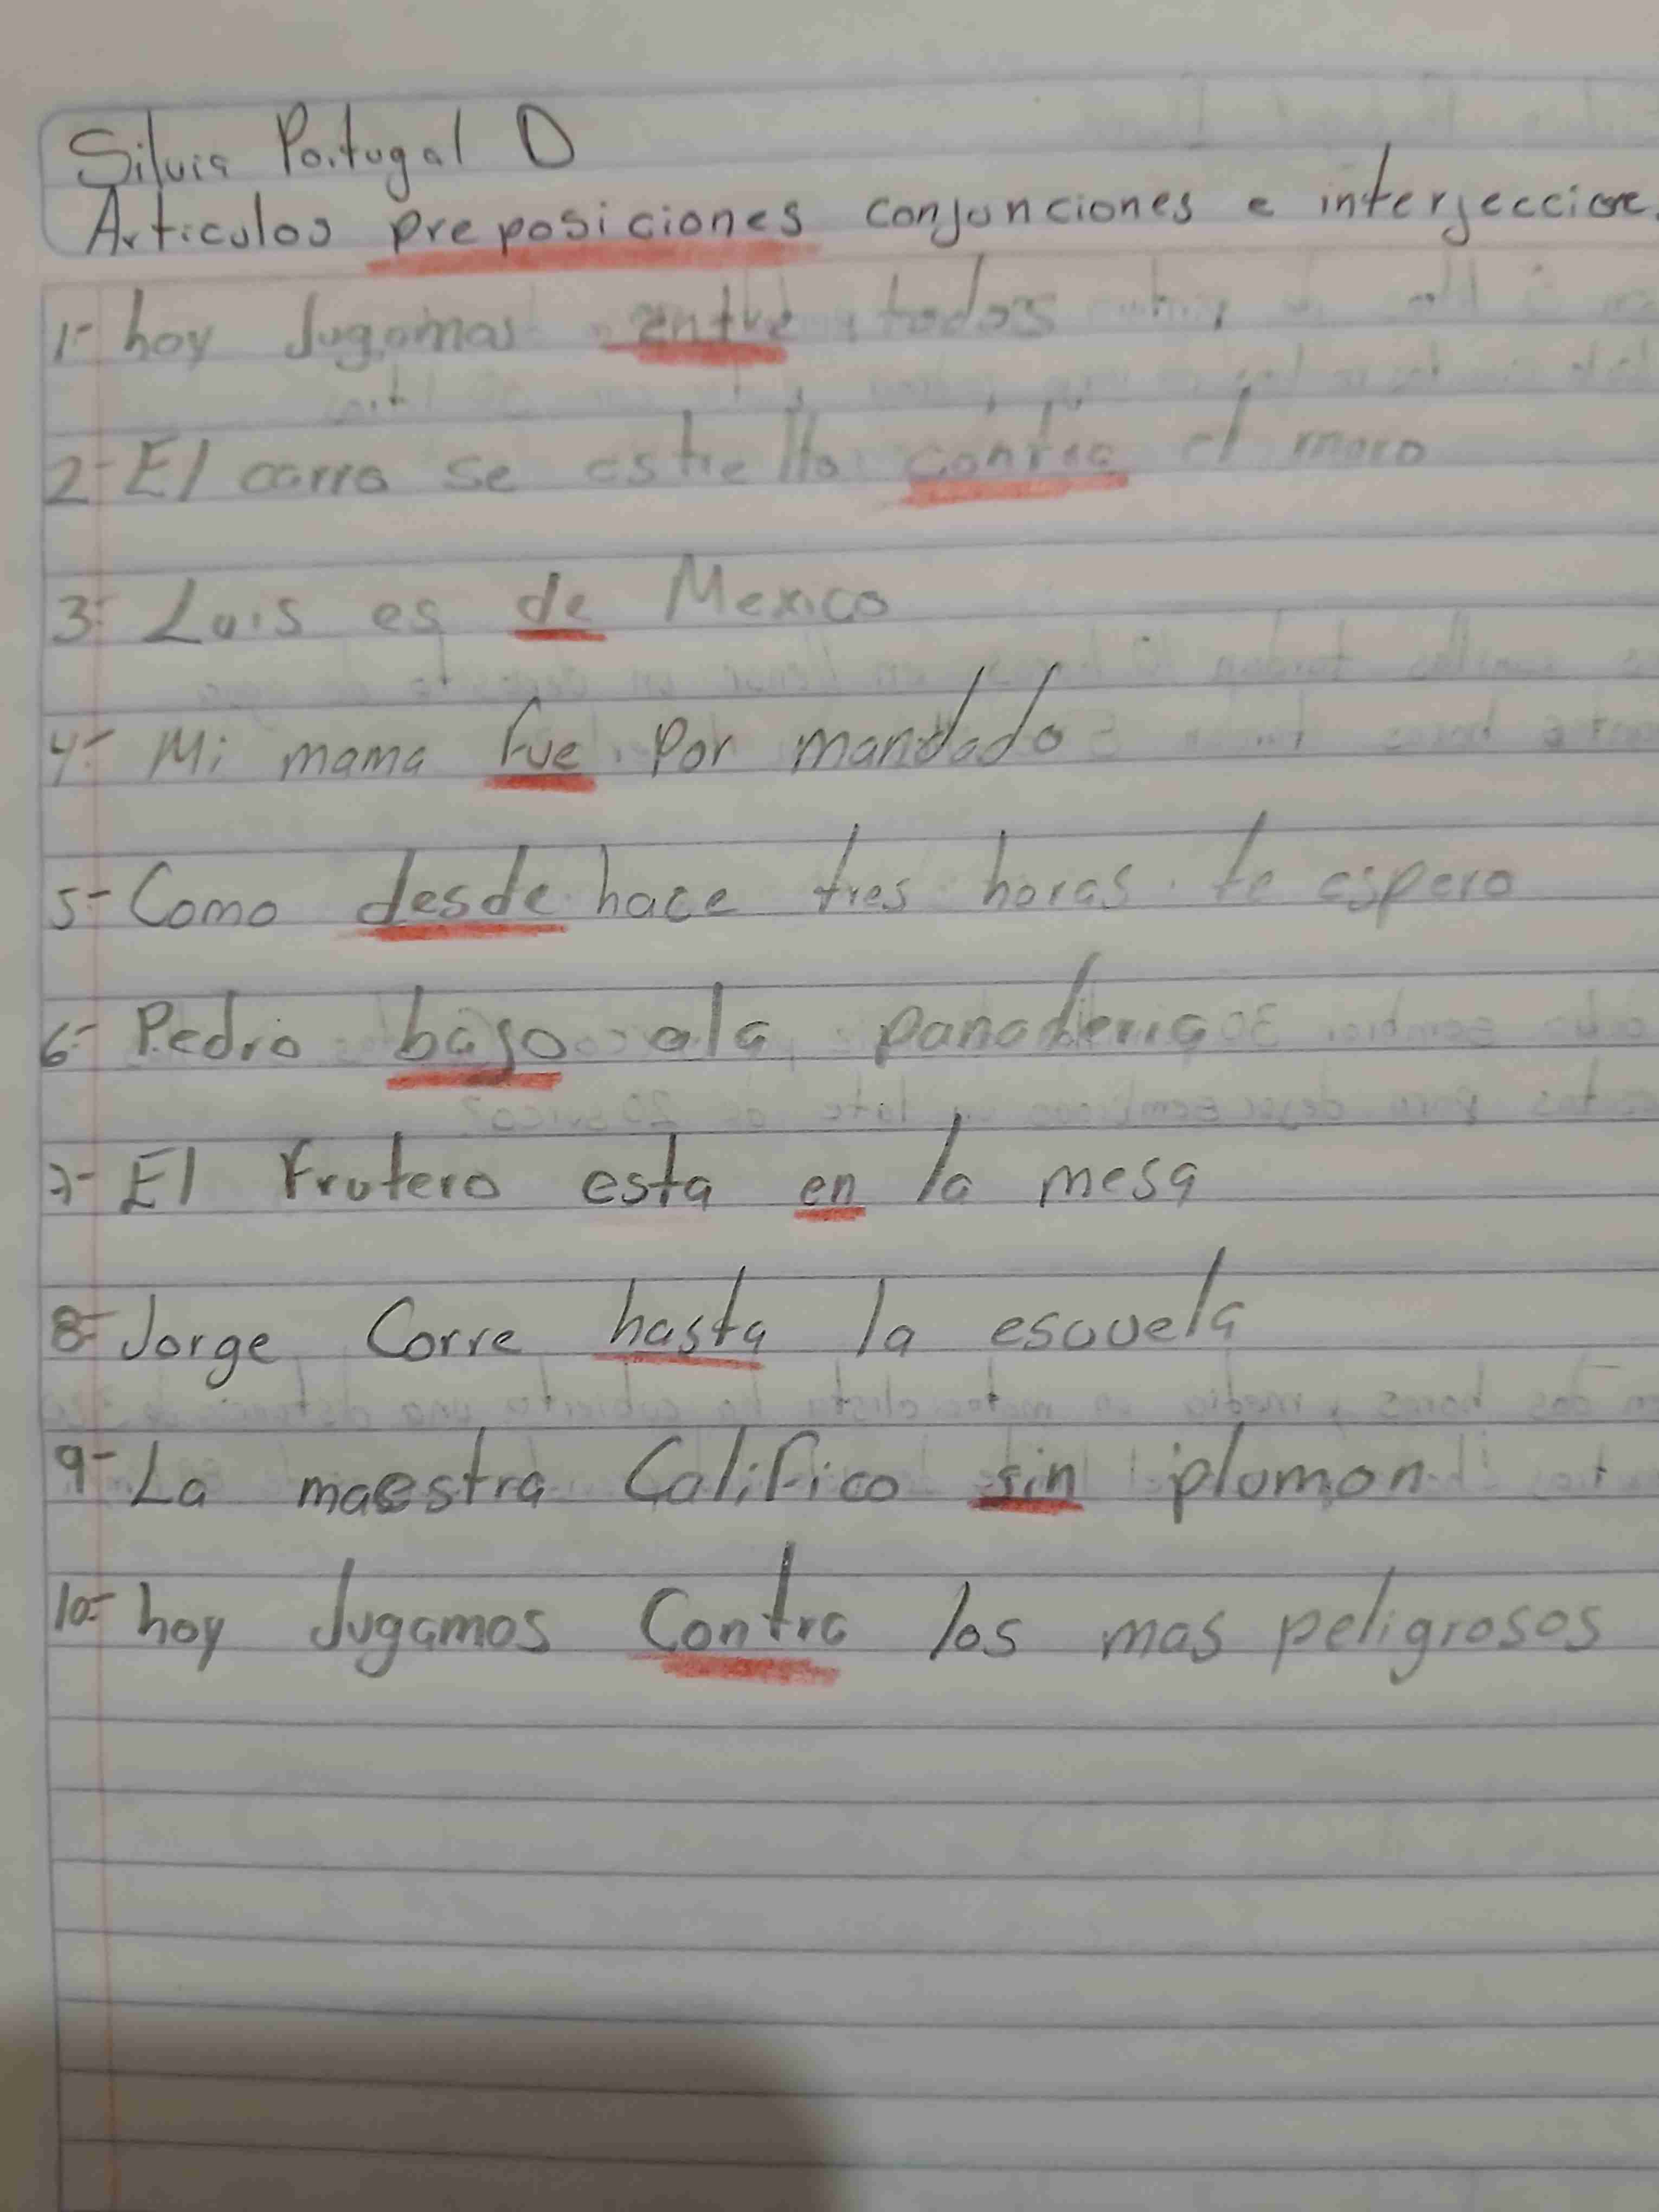 Silvia Portugal D
Articulos preposiciones conjunciones e interjeccione
1- hoy Jugamos entre todos
2- El carro se estrello contra el muro
3- Luis es de Mexico
4- Mi mama fue por mandado
5- Como desde hace tres horas te espero
6- Pedro bajo ala panaderia
7- El Frutero esta en la mesa
8- Jorge Corre hasta la escuela
9- La maestra Califico sin plumon
10- hoy Jugamos Contra los mas peligrosos